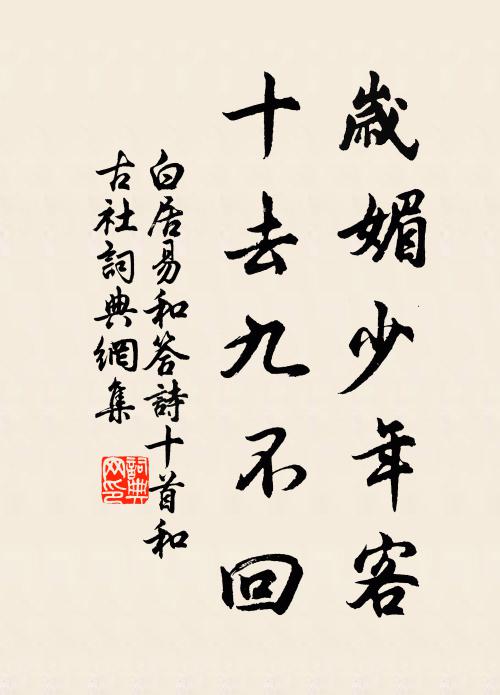 歲媚少年客
十去九不回
白居易和答詩十首和
古社詞典網集
詞典网印